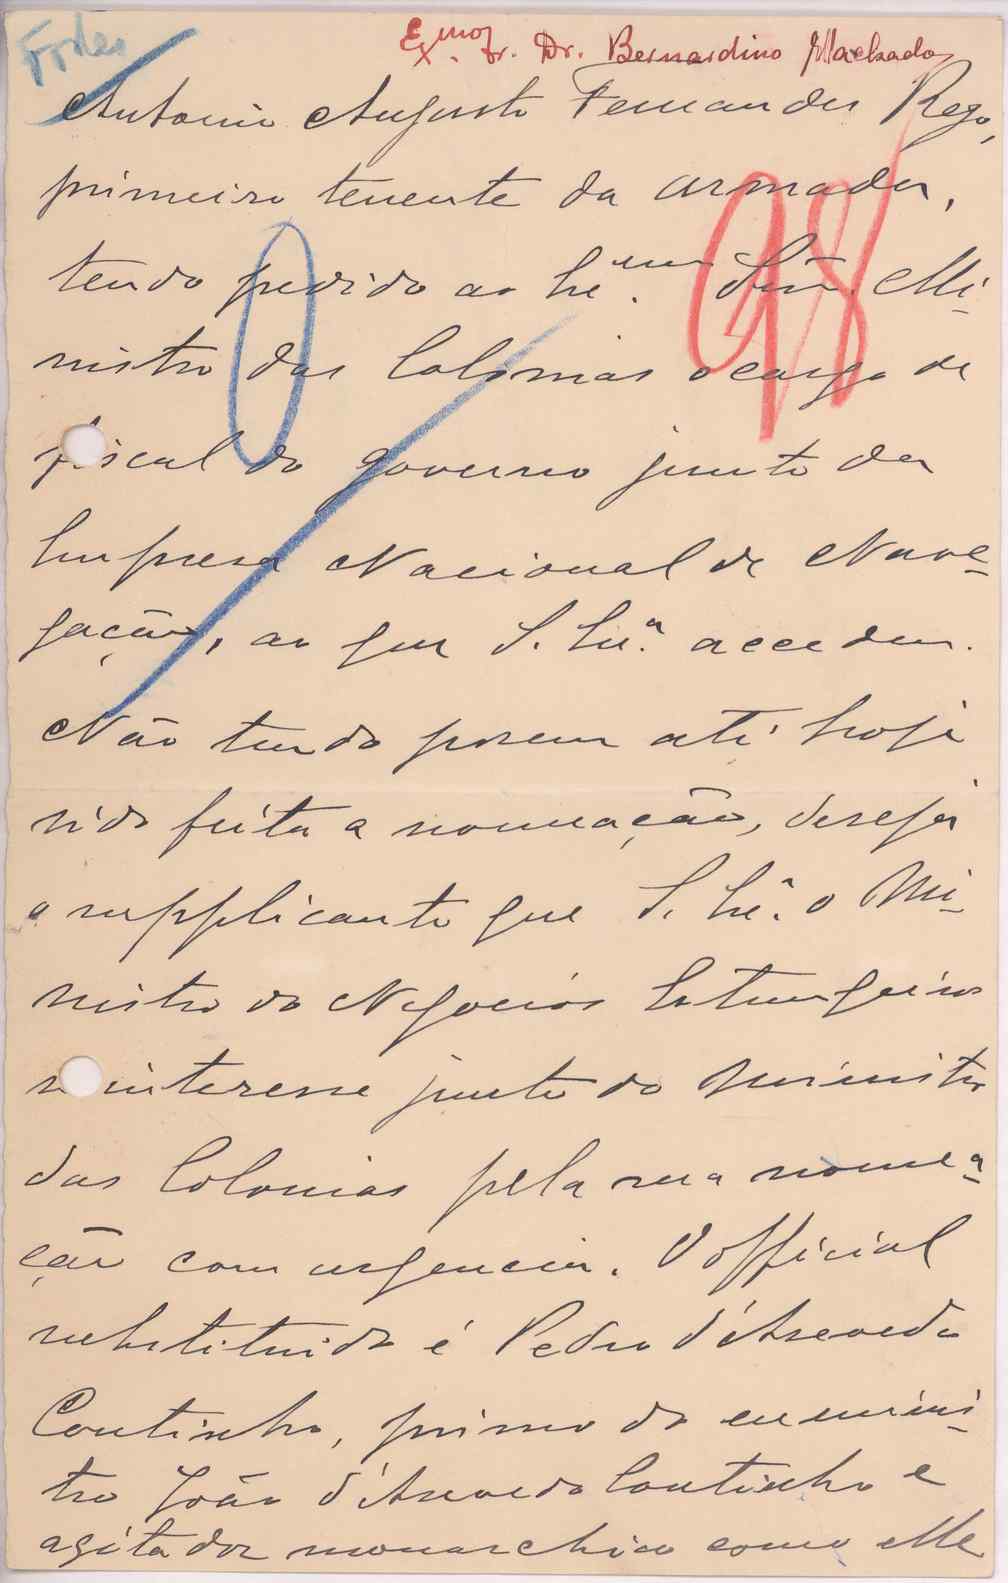 Exmo Sr. Dr. Bernardino Machado
Antonio Augusto Fernandes Rego,
primeiro tenente da armada,
tendo pedido ao Ex.mo Snr. Mi-
nistro das Colonias o cargo de
fiscal do governo junto da
Empresa Nacional de Nave-
gação, ao que S. Ex.a accedeu.
Não tendo porem até hoje
sido feita a nomeação, deseja
o supplicante que S. Ex.a o Mi-
nistro do Negocios Estrangeiros
se interesse junto do Ministro
das Colonias pela sua nomea-
ção com urgencia. O official
substituido é Pedro d'Azevedo
Coutinho, primo do ex minis-
tro João d'Azevedo Coutinho e
agitador monarchico como elle